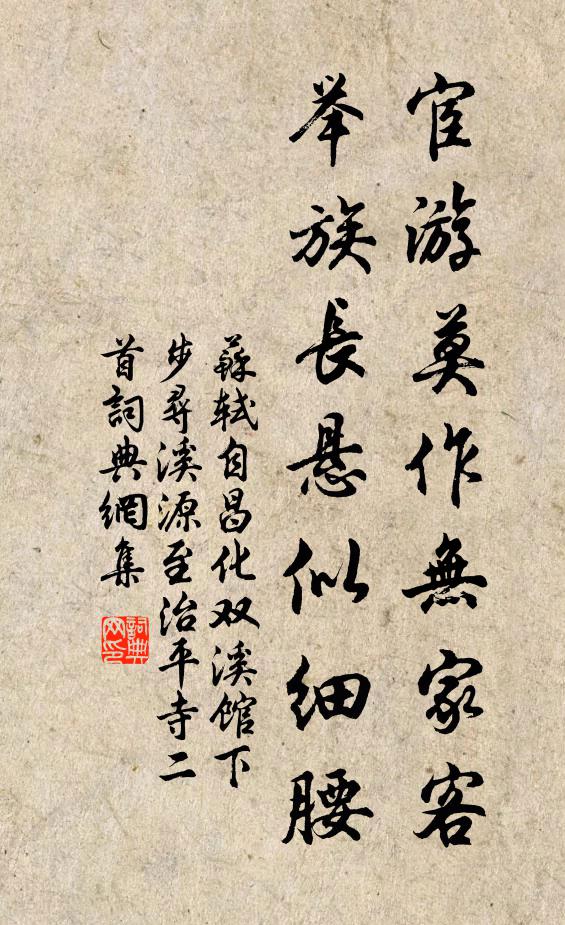 宦游莫作無家客
举族長悬似细腰
蘇轼自昌化双溪馆下
步尋溪源至治平寺二
首詞典網集
詞典
网印